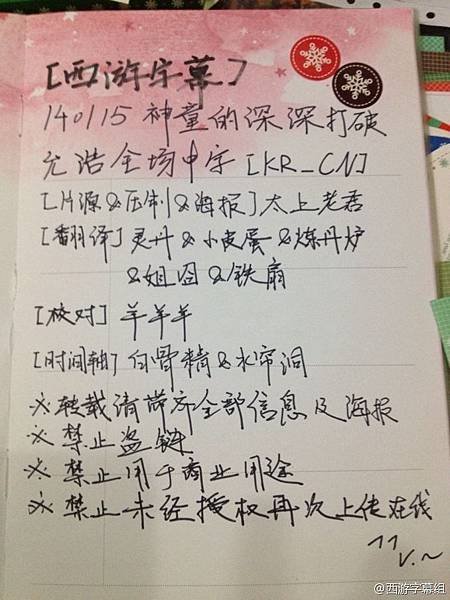 [西游字幕]
140115 神童的深深打破
允浩全场中字 [KR_CN]
[片源&压制&海报] 太上老君
[翻译] 灵丹&小皮蛋&炼丹炉
&姐囧&铁扇
[校对] 羊羊羊
[时间轴] 白骨精&水帘洞
※转载请带齐全部信息及海报
※禁止盗链
※禁止用于商业用途
※禁止未经授权再次上传在线
@西游字幕组